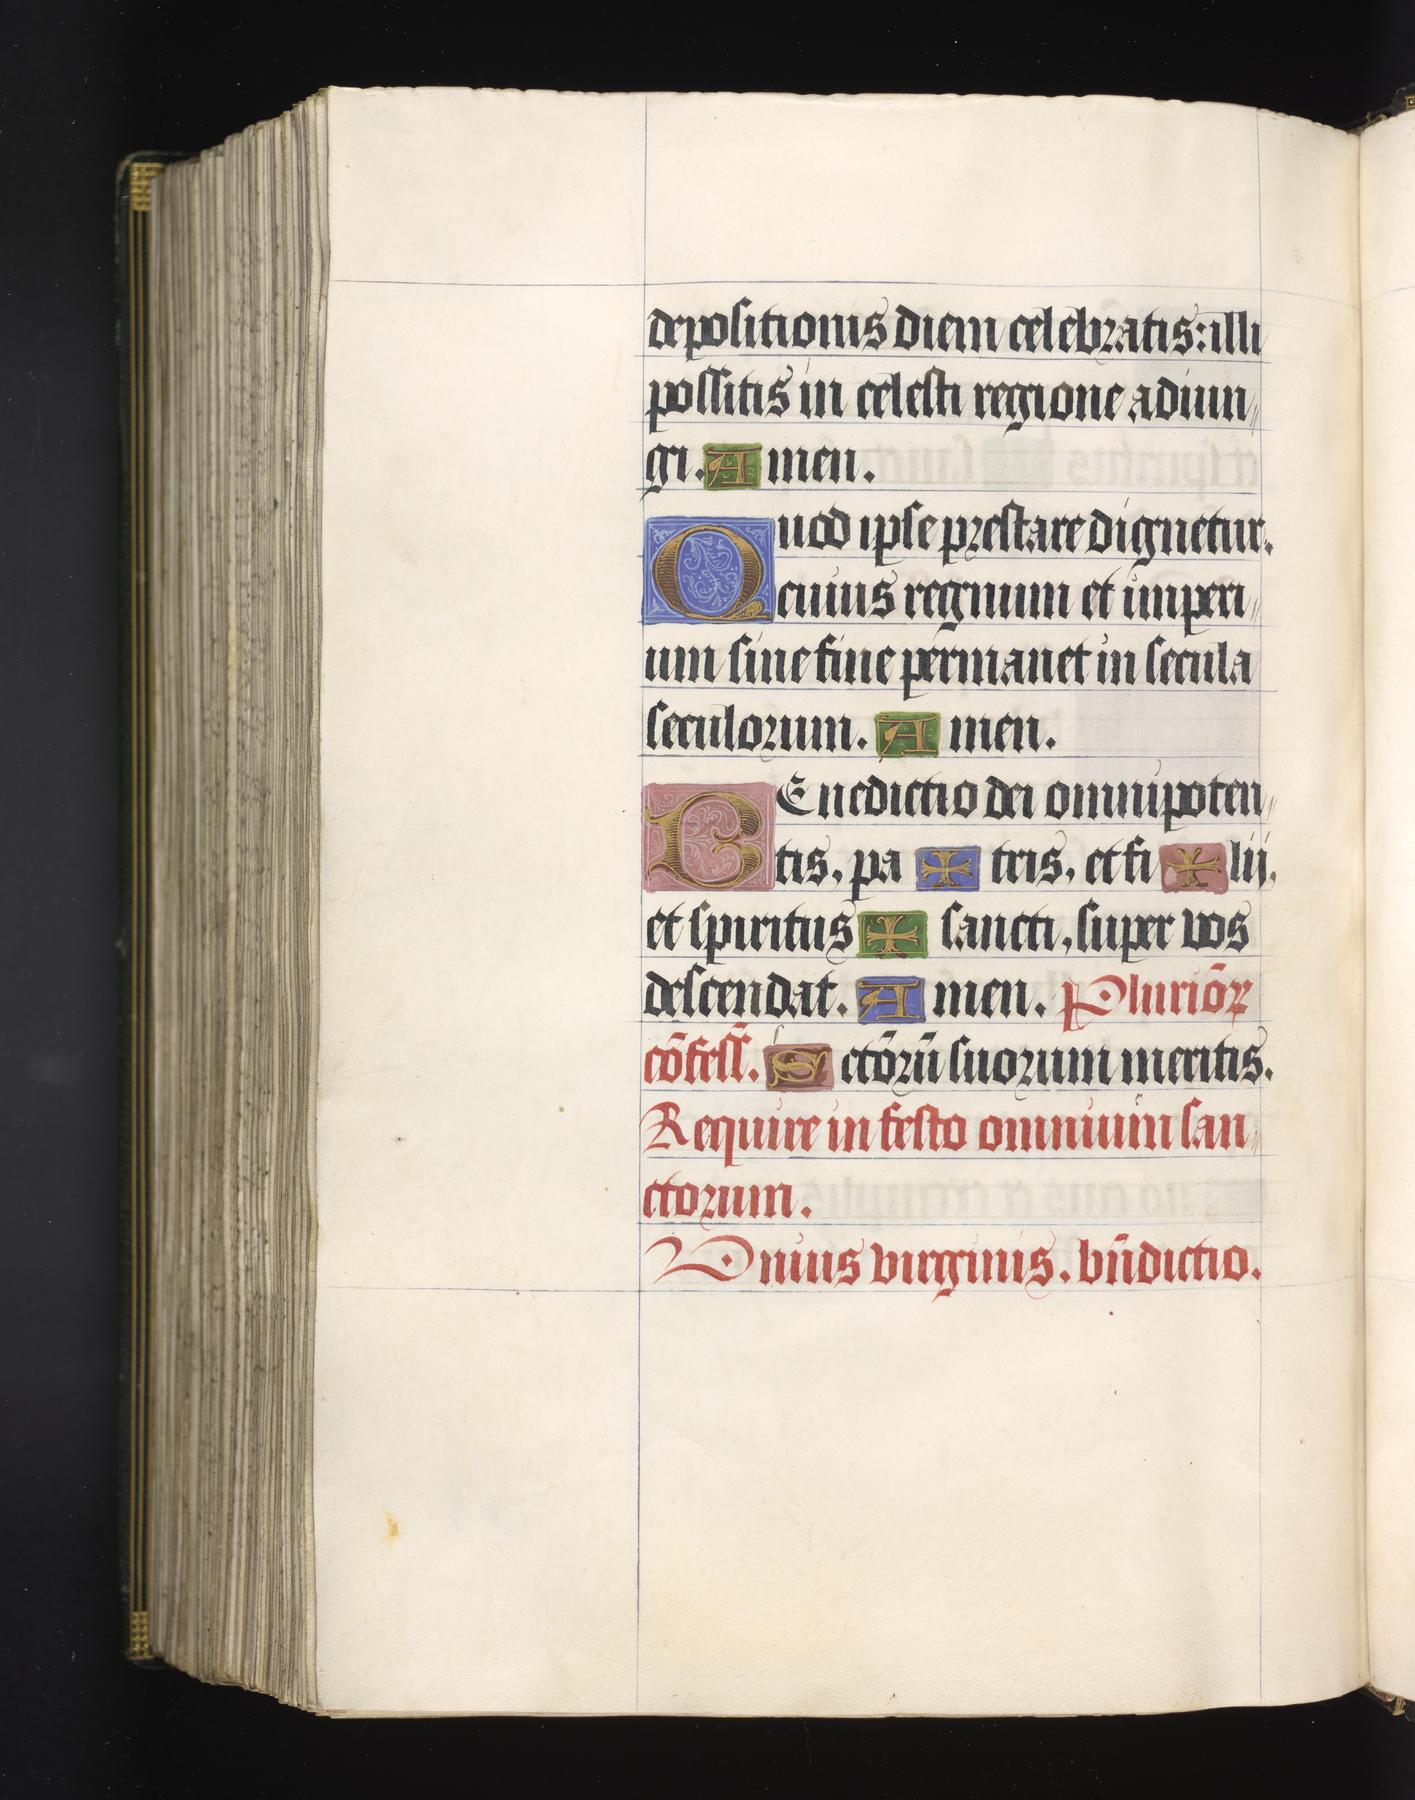 depositionis diem celebratis: illi
possitis in celesti regione adiun〃
gi. Amen.
Quod ipse prestare dignetur.
cuius regnum et imperi〃
um sine fine permanet in secula
seculorum. Amen.
BEnedictio dei omnipoten〃
tis, pa ✠ tris, et fi ✠ lii,
et spiritus ✠ sancti, super vos
descendat. Amen. Pluriōꝝ
cōfess. Sctōrū suorum meritis.
Require in festo omnium san〃
ctorum.
Unius virginis. bn̄dictio.